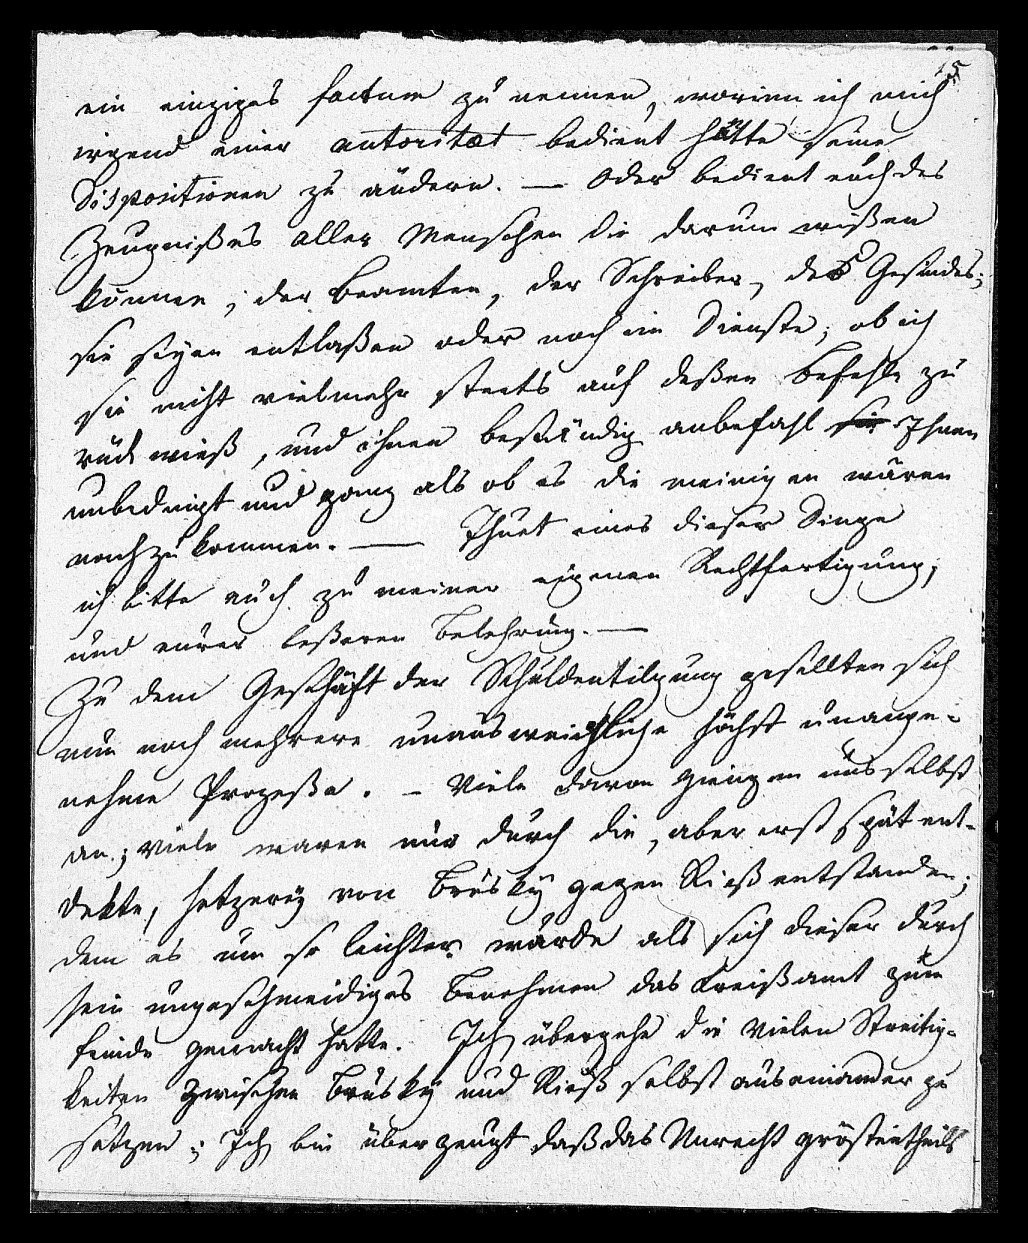 15
ein einziges factum zu nennen, worinn ich mich
irgend einer autoritæt bedient hätte seine
Dispositionen zu ändern. — Oder bedient euch des
Zeugnißes aller Menschen die darum wißen
können, der Beamten, der Schreiber, des Gesindes;
sie seyen entlaßen oder noch im Dienste; ob ich
sie nicht vielmehr steets auf deßen Befehle zu
rück wieß, und ihnen beständig anbefahl sie Ihnen
unbedingt und ganz als ob es die meinigen wären
nachzukommen. — Thuet eines dieser Dinge
ich bitte euch zu meiner eigenen Rechtfertigung;
und eurer beßeren Belehrung. —
Zu dem Geschäft der Schuldentilgung gesellten sich
nun noch mehrere unausweichliche höchst unange-
nehme Prozeße. – Viele davon giengen uns selbst
an; viele waren nur durch die, aber erst spät ent-
dekte, hetzerey von Brusky gegen Rieß entstanden;
dem es um so leichter wurde als sich dieser durch
sein ungeschmeidiges Benehmen das Kreißamt zum
feinde gemacht hatte. Ich übergehe die vielen Streitig-
keiten zwischen Brusky und Rieß selbst auseinander zu
setzen; Ich bin überzeugt daß das Unrecht gröstentheils